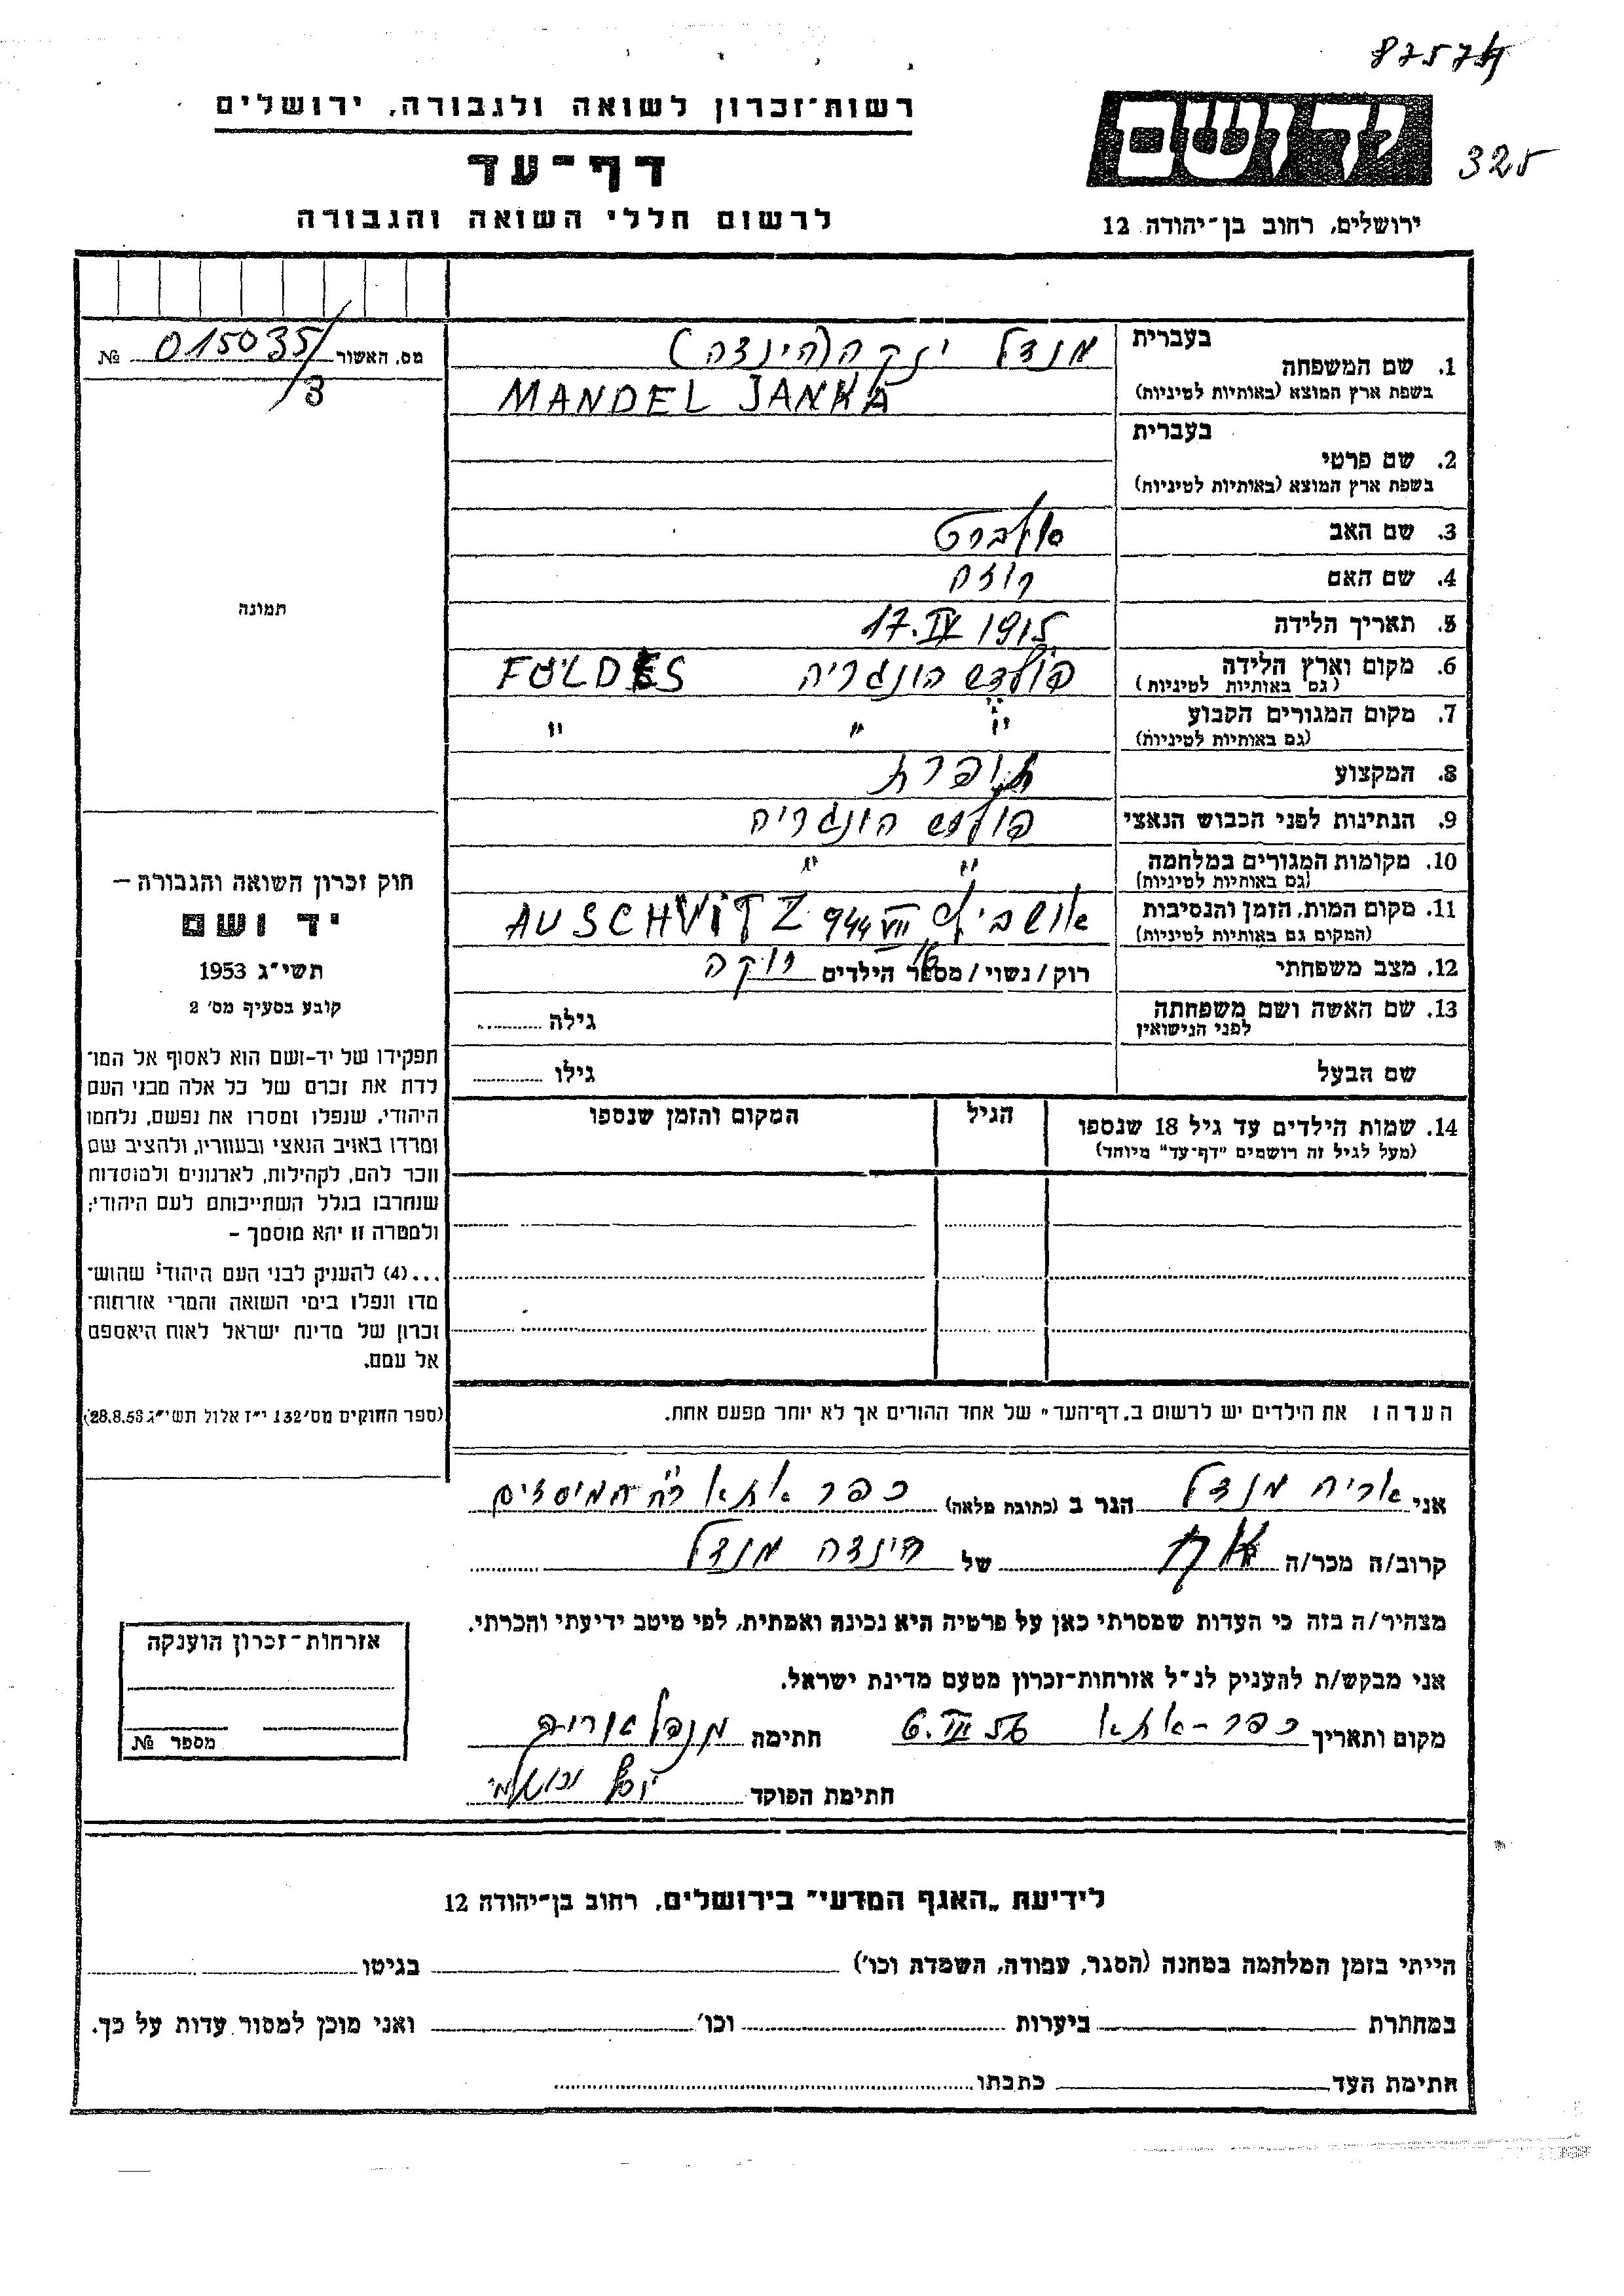 87574
325
רשות־זכרון לשואה ולגבורה, ירושלים
דף־עד
לרשום חללי השואה והגבורה
יד ושם
ירושלים, רחוב בן־יהודה 12
מס. האשור 015035/3 №
1. שם המשפחה
בעברית מנדל ינקה (הינדה)
בשפת ארץ המוצא (באותיות לטיניות) MANDEL JANKA
2. שם פרטי
בעברית
בשפת ארץ המוצא (באותיות לטיניות)
3. שם האב
4. שם האם רוזה
5. תאריך הלידה 17.IV 1915
6. מקום וארץ הלידה פולדש הונגריה FÖLDES
(גם באותיות לטיניות)
7. מקום המגורים הקבוע " " "
(גם באותיות לטיניות)
8. המקצוע תופרת
9. הנתינות לפני הכבוש הנאצי פולדש הונגריה
10. מקומות המגורים במלחמה " "
(גם באותיות לטיניות)
11. מקום המות, הזמן והנסיבות אושביץ 944 VII AUSCHWITZ
(המקום גם באותיות לטיניות)
12. מצב משפחתי רוק/נשוי/מספר הילדים רוקה
13. שם האשה ושם משפחתה גילה
לפני הנישואין
שם הבעל גילו
14. שמות הילדים עד גיל 18 שנספו הגיל המקום והזמן שנספו
(מעל לגיל זה רושמים "דף־עד" מיוחד)
הערה: את הילדים יש לרשום ב„דף־העד" של אחד ההורים אך לא יותר מפעם אחת.
תמונה
חוק זכרון השואה והגבורה —
יד ושם
תשי"ג 1953
קובע בסעיף מס' 2
תפקידו של יד-ושם הוא לאסוף אל המו־
לדת את זכרם של כל אלה מבני העם
היהודי, שנפלו ומסרו את נפשם, נלחמו
ומרדו באויב הנאצי ובעוזריו, ולהציב שם
וזכר להם, לקהילות, לארגונים ולמוסדות
שנחרבו בגלל השתייכותם לעם היהודי;
ולמטרה זו יהא מוסמך —
...(4) להעניק לבני העם היהודי שהוש־
מדו ונפלו בימי השואה והמרי אזרחות־
זכרון של מדינת ישראל לאות היאספם
אל עמם.
(ספר החוקים מס' 132 י"ז אלול תשי"ג 28.8.53)
אני אריה מנדל הגר ב (כתובת מלאה) כפר אתא רח המיסדים
קרוב/ה מכר/ה אח של הינדה מנדל
מצהיר/ה בזה כי העדות שמסרתי כאן על פרטיה היא נכונה ואמתית, לפי מיטב ידיעתי והכרתי.
אני מבקש/ת להעניק לנ"ל אזרחות־זכרון מטעם מדינת ישראל.
מקום ותאריך כפר-אתא 56 חתימה מנדל אריה
חתימת הפוקד
אזרחות־זכרון הוענקה
מספר №
לידיעת „האגף המדעי" בירושלים, רחוב בן־יהודה 12
הייתי בזמן המלחמה במחנה (הסגר, עבודה, השמדת וכו') בגיטו
במחתרת ביערות וכו' ואני מוכן למסור עדות על כך.
חתימת העד כתבתו